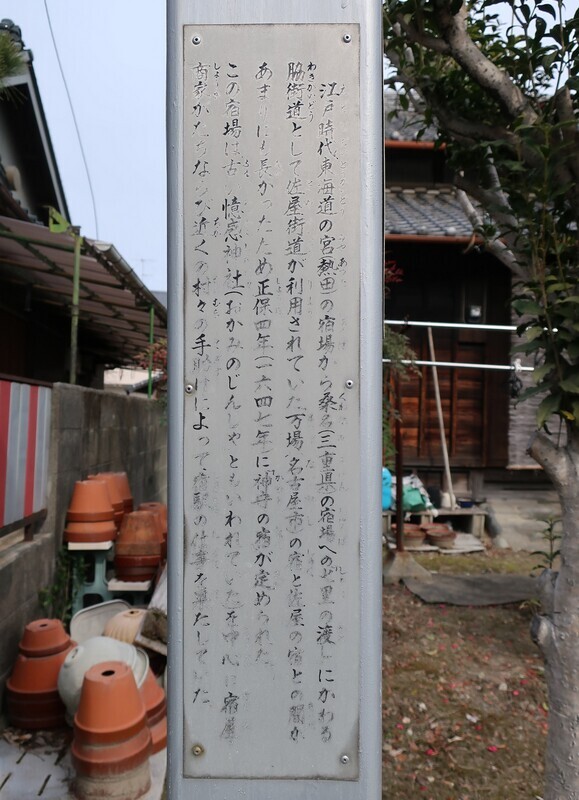 江戸時代東海道の宮(熱田の宿場から桑名(三重県の宿場への七里の渡しにかわる
脇街道として佐屋街道が利用されていた万場(名古屋市の宿と佐屋の宿との間が
あまりにも長かったため正保四年(一六四七年)に神守の宿が定められた
この宿場は古い憶感神社(おかみのじんしゃともいわれていたを中心に宿屋
商家がたちならび近くの村々の手助けによって宿駅の仕事を果たしていた